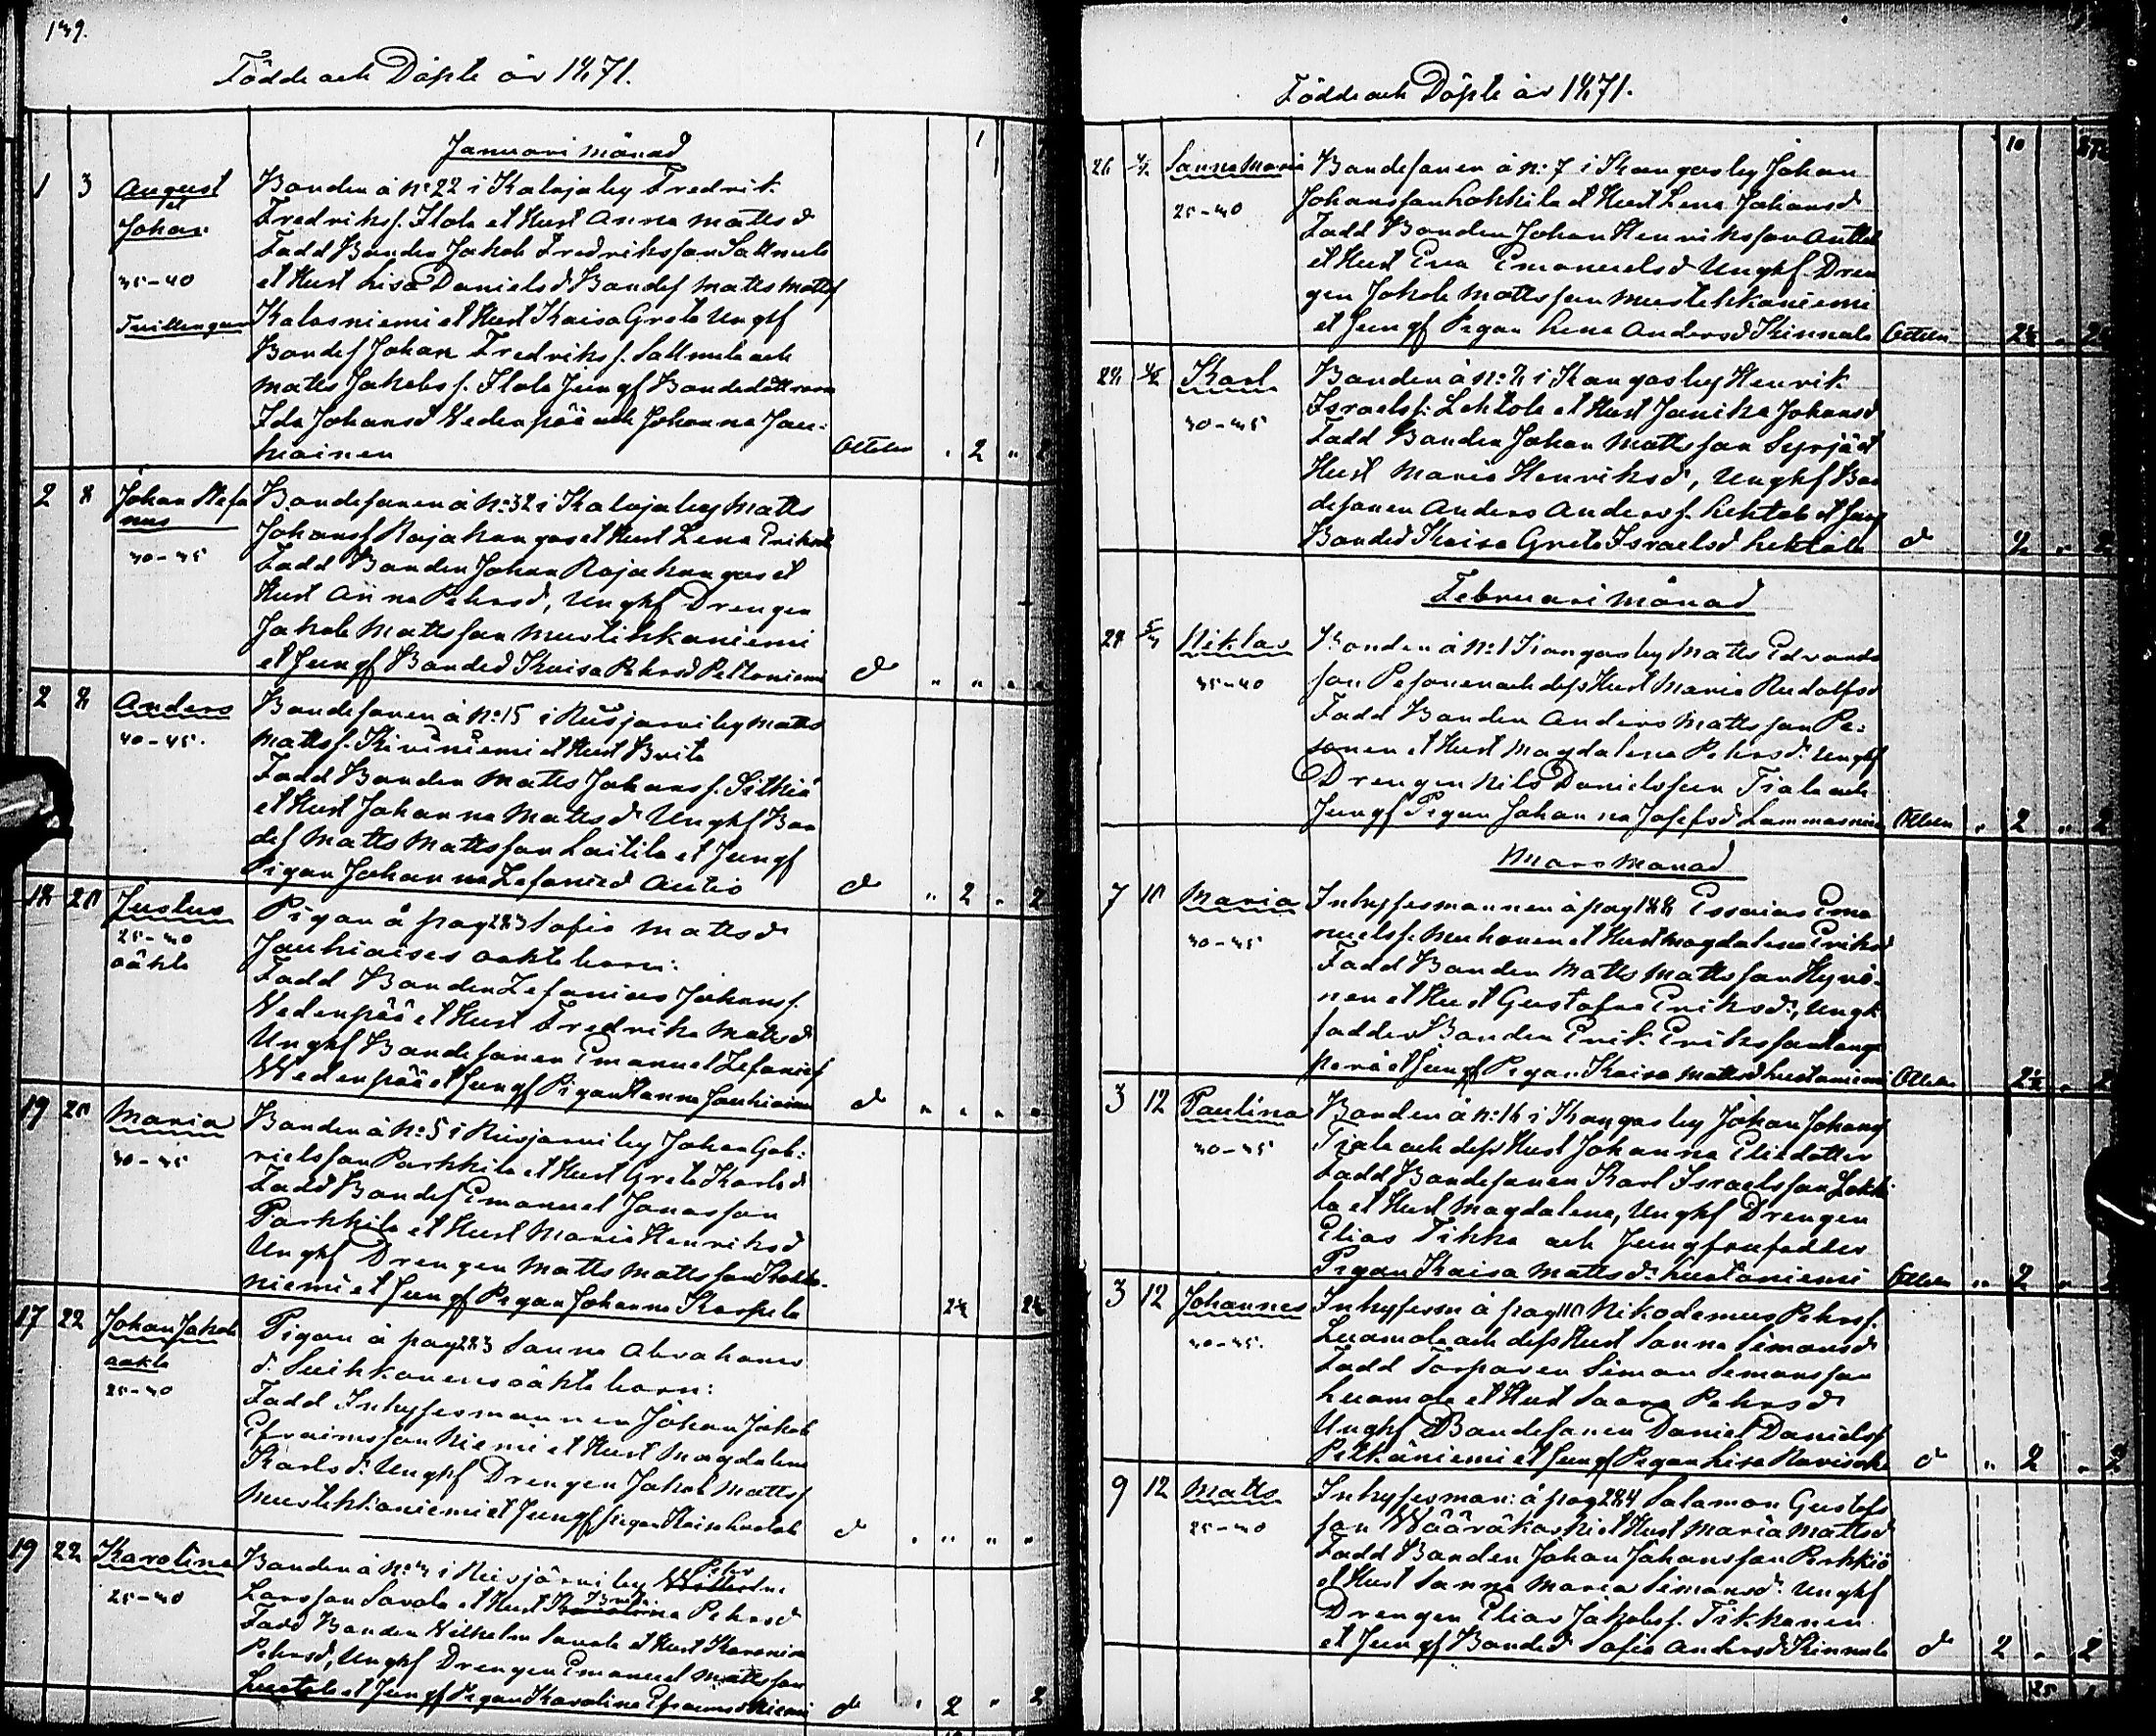 139.
Födde och Döpte år 1871.
Januari månad
1 3 August et Johan 35-40 Tvillingar
Bonden å No 22 i Kalaja by Fredrik
Fredrikss. Ilola et Hust Anna Mattsd
Fadd Bonden Jakob Fredriksson Sallmela
et Hust Lisa Danielsd Bondes Matts Mattss
Kalasniemi et Hust Kaisa Greta Unghf
Bondes Johan Fredrikss. Sallmela och
Matts Jakobs s. Ilola Jungf Bondedöttrarna
Ida Johansd Vedenpää och Johanna Jau-
hiainen Ottelin " 2 " 2
2 8 Johan Stefanus 30-35
Bondesonen å No 32 i Kalaja by Matts
Johanss Rajakangas et Hust Lena Eriksd
Fadd Bonden Johan Rajakangas et
Hust Anna Pehrsd, Unghf Drengen
Jakob Mattsson Mustihkaniemi
et Jungf Bonded Kaisa Pehrsd Peltoniemi d " " " "
2 8 Anders 40-45.
Bondesonen å No 15 i Reisjärvi by Matts
Mattss. Kiviniemi et Hust Brita
Fadd Bonden Matts Johans s.
et Hust Johanna Mattsd Unghf Bon
des Matts Mattsson Laitila et Jungf
Pigan Johanna Zefaniad Autio d " 2 " 2
18 20 Justus 25-30 oäkta
Pigan å pag 283 Sofia Mattsd
Jauhiaises oäkta barn:
Fadd Bonden Zefanias Johans s.
Vedenpää et Hust Fredrika Mattsd
Unghf Bondesonen Emanuel Zefanias
Wedenpää et Jungf Pigan Sanna Jauhiainen d " " " "
19 20 Maria 30-35
Bonden å No 5 i Reisjärvi by Johan Gab-
rielsson Parkkila et Hust Greta Karlsd
Fadd Bondes Emanuel Jonasson
Parkkila et Hust Maria Henriksd
Unghf Drengen Matts Mattsson
niemi et Jungf Pigan Johanna Karpela
17 22 Johan Jakob oäkta 25-30
Pigan å pag 283 Sanna Abrahams
d. Suihkonens oäkta barn:
Fadd Inhysesmannen Johan Jakob
Efraimsson Niemi et Hust Magdalena
Karlsd. Unghf Drengen Jakob Mattss
Mustihkaniemi et Jungf Pigan Kaisa d " " " "
19 22 Karolina 25-30
Bonden å No i Reisjärvi by Peter
Larsson Savola et Hust Brita Pehrsd
Fadd Bonden Wilhelm Savola et Hust
Pehrsd, Unghf Drengen Emanuel Mattsson
et Jungf Pigan Karolina Efraimsd Niemi d " 2 " 2
Födde och Döpte år 1871.
Sanna Maria 25-30
Bondesonen å No 7 i Kangas by Johan
Johansson Lokkila et Hust Lena Johansd
Fadd Bonden Johan Henriksson
et Hust Eva Emanuelsd Unghf Dren
gen Jakob Mattsson Mustihkaniemi
et Jungf Pigan Lena Andersd Kinnula Ottelin
Karl 30-35
Bonden å No 8 i Kangas by Henrik
Israelss. Lehtola et Hust Janika Johansd
Fadd Bonden Johan Mattsson Syrjä et
Hust Maria Henriksd, Unghf Bon
desonen Anders Anderss. Lehtola et Jungf
Bonded Kaisa Greta Israelsd Lehtola d
Februari månad
Niklas 35-40
Bonden å No 1 Kangas by Matts Edvards
son Pesonen och dess Hust Maria Rudolfsd
Fadd Bonden Anders Mattsson Pe-
sonen et Hust Magdalena Pehrsd. Unghf
Drengen Nils Danielsson Tiala och
Jungf Pigan Johanna Josefsd Lammasniemi Ottelin " 2 " 2
Mars månad
7 10 Maria 30-35
Inhysesmannen å pag 188 Essaias Ema
nuelss. Muhonen et Hust Magdalena Eriksd
Fadd Bonden Matts Mattsson Hyvö-
nen et Hust Gustafva Eriksd, Ungk
fadder Bonden Erik Eriksson Kangas
perä et Jungf Pigan Kaisa Mattsd Luotoniemi Ottelin
3 12 Paulina 30-35
Bonden å No 16 i Kangas by Johan Johanss
Tiala och dess Hust Johanna Eliedotter
Fadd Bondesonen Karl Israelsson Lokki
la et Hust Magdalena, Unghf Drengen
Elias Tikka och Jungfrufadder
Pigan Kaisa Mattsd. Luotoniemi Ottelin " 2 "
3 12 Johannes 30-35.
Inhysesm å pag 110 Nikodemus Pehrss.
Luomala och dess Hust Sanna Simonsd
Fadd Torparen Simon Simonsson
Luomala et Hust Saara Pehrsd
Unghf Bondesonen Daniel Danielss
Petkäniemi et Jungf Pigan Lisa d " 2 " 2
9 12 Matts 25-30
Inhysesman: å pag 284 Salamon Gustafs
son Wääräkoski et Hust Maria Mattsd
Fadd Bonden Johan Johansson Parkkila
et Hust Sanna Maria Simonsd. Unghf
Drengen Elias Jakobss. Tikkanen
et Jungf Bonded Sofia Andersd Kinnula d 2 " 2